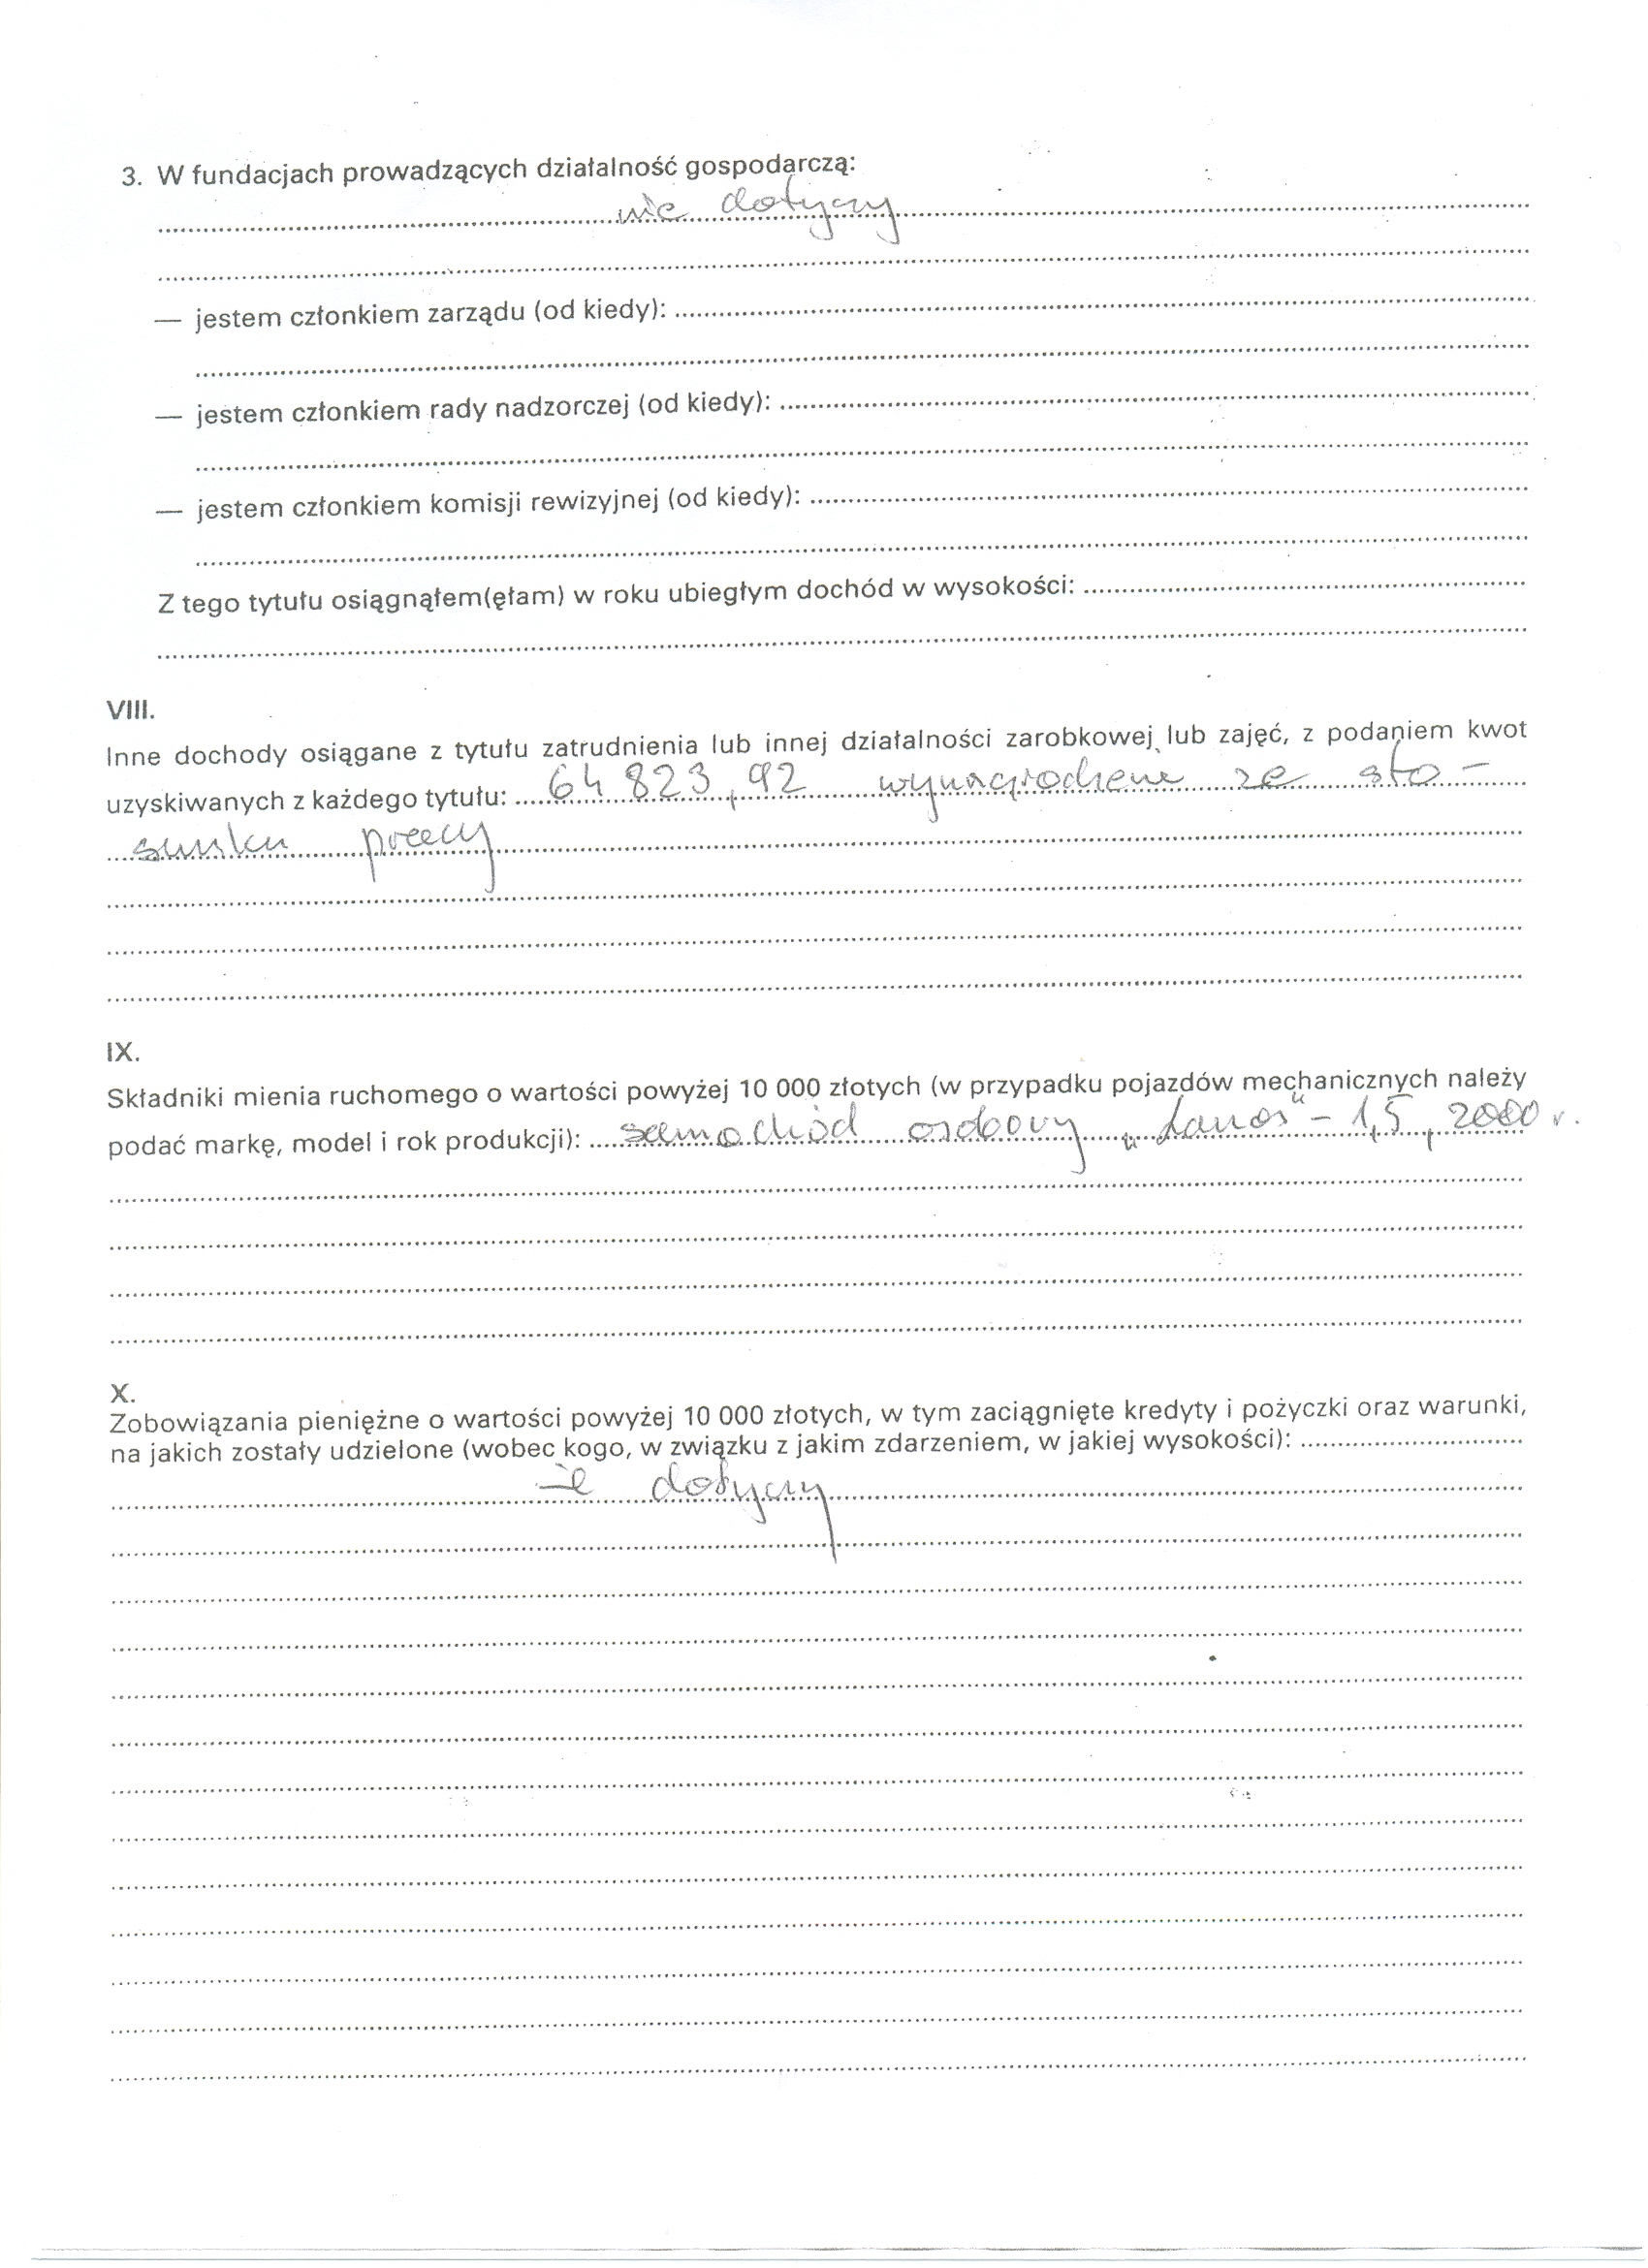 3. W fundacjach prowadzących działalność gospodarczą:
nie dotyczy
— jestem członkiem zarządu (od kiedy):
— jestem członkiem rady nadzorczej (od kiedy):
— jestem członkiem komisji rewizyjnej (od kiedy):
Z tego tytułu osiągnąłem(ęłam) w roku ubiegłym dochód w wysokości:
VIII.
Inne dochody osiągane z tytułu zatrudnienia lub innej działalności zarobkowej lub zajęć, z podaniem kwot
uzyskiwanych z każdego tytułu: 64 823,92 wynagrodzenie ze sto-
sunku pracy
IX.
Składniki mienia ruchomego o wartości powyżej 10 000 złotych (w przypadku pojazdów mechanicznych należy
podać markę, model i rok produkcji): samochód osobowy „Lanos" – 1,5, 2000 r.
X.
Zobowiązania pieniężne o wartości powyżej 10 000 złotych, w tym zaciągnięte kredyty i pożyczki oraz warunki,
na jakich zostały udzielone (wobec kogo, w związku z jakim zdarzeniem, w jakiej wysokości):
nie dotyczy